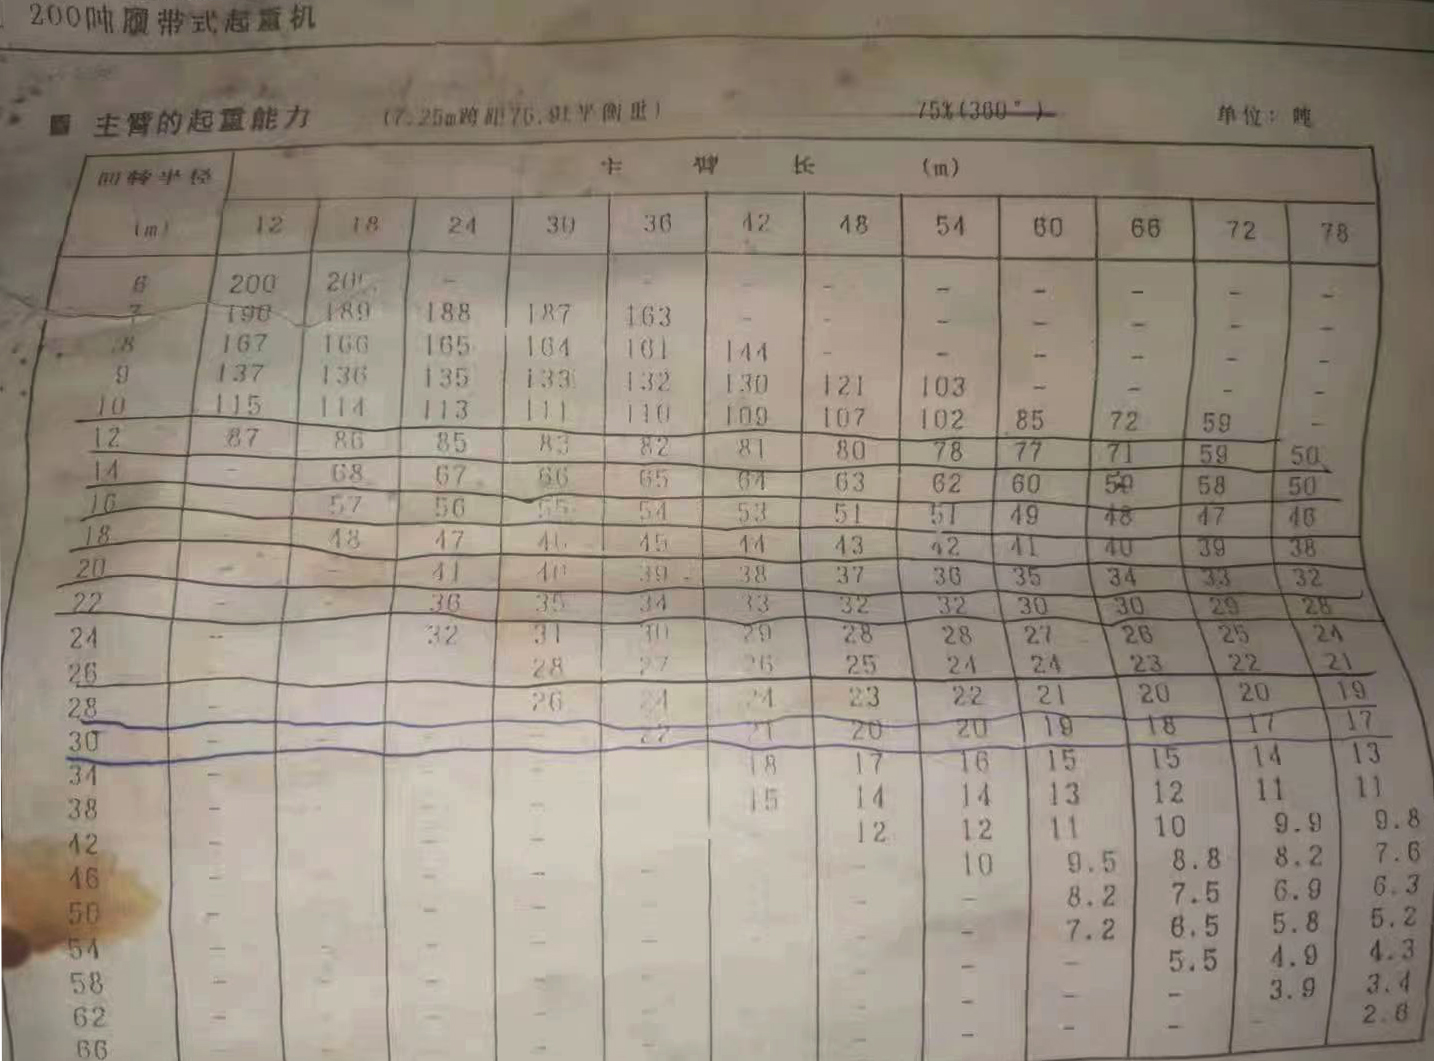 200吨履带式起重机
主臂的起重能力 (7.25m跨距76.9t平衡重) 75%(360°) 单位: 吨
回转半径 主 臂 长 (m)
(m) 12 18 24 30 36 42 48 54 60 66 72 78
6 200 - - - - - - - - - -
7 190 189 188 187 163 - - - - - - -
8 167 166 165 164 161 144 - - - - - -
9 137 136 135 133 132 130 121 103 - - - -
10 115 114 113 111 110 109 107 102 85 72 59 -
12 87 86 85 83 82 81 80 78 77 71 59 50
14 - 68 67 66 65 64 63 62 60 59 58 50
16 57 56 55 54 53 51 51 49 48 47 46
18 - 48 47 46 45 44 43 42 41 40 39 38
20 - - 41 40 39 38 37 36 35 34 33 32
22 - - 36 35 34 33 32 32 30 30 29 28
24 - 32 31 30 29 28 28 27 26 25 24
26 28 27 26 25 24 24 23 22 21
28 - 26 24 24 23 22 21 20 20 19
30 - - - - 22 21 20 20 19 18 17 17
34 - - - - 18 17 16 15 15 14 13
38 - - - - 15 14 14 13 12 11 11
42 - - - - 12 12 11 10 9.9 9.8
46 - - - - - - 10 9.5 8.8 8.2 7.6
50 - - - - - - - 8.2 7.5 6.9 6.3
54 - - - - - - - 7.2 6.5 5.8 5.2
58 - - - - - - - - 5.5 4.9 4.3
62 - - - - - - - - - 3.9 3.4
66 - - - - - 2.6